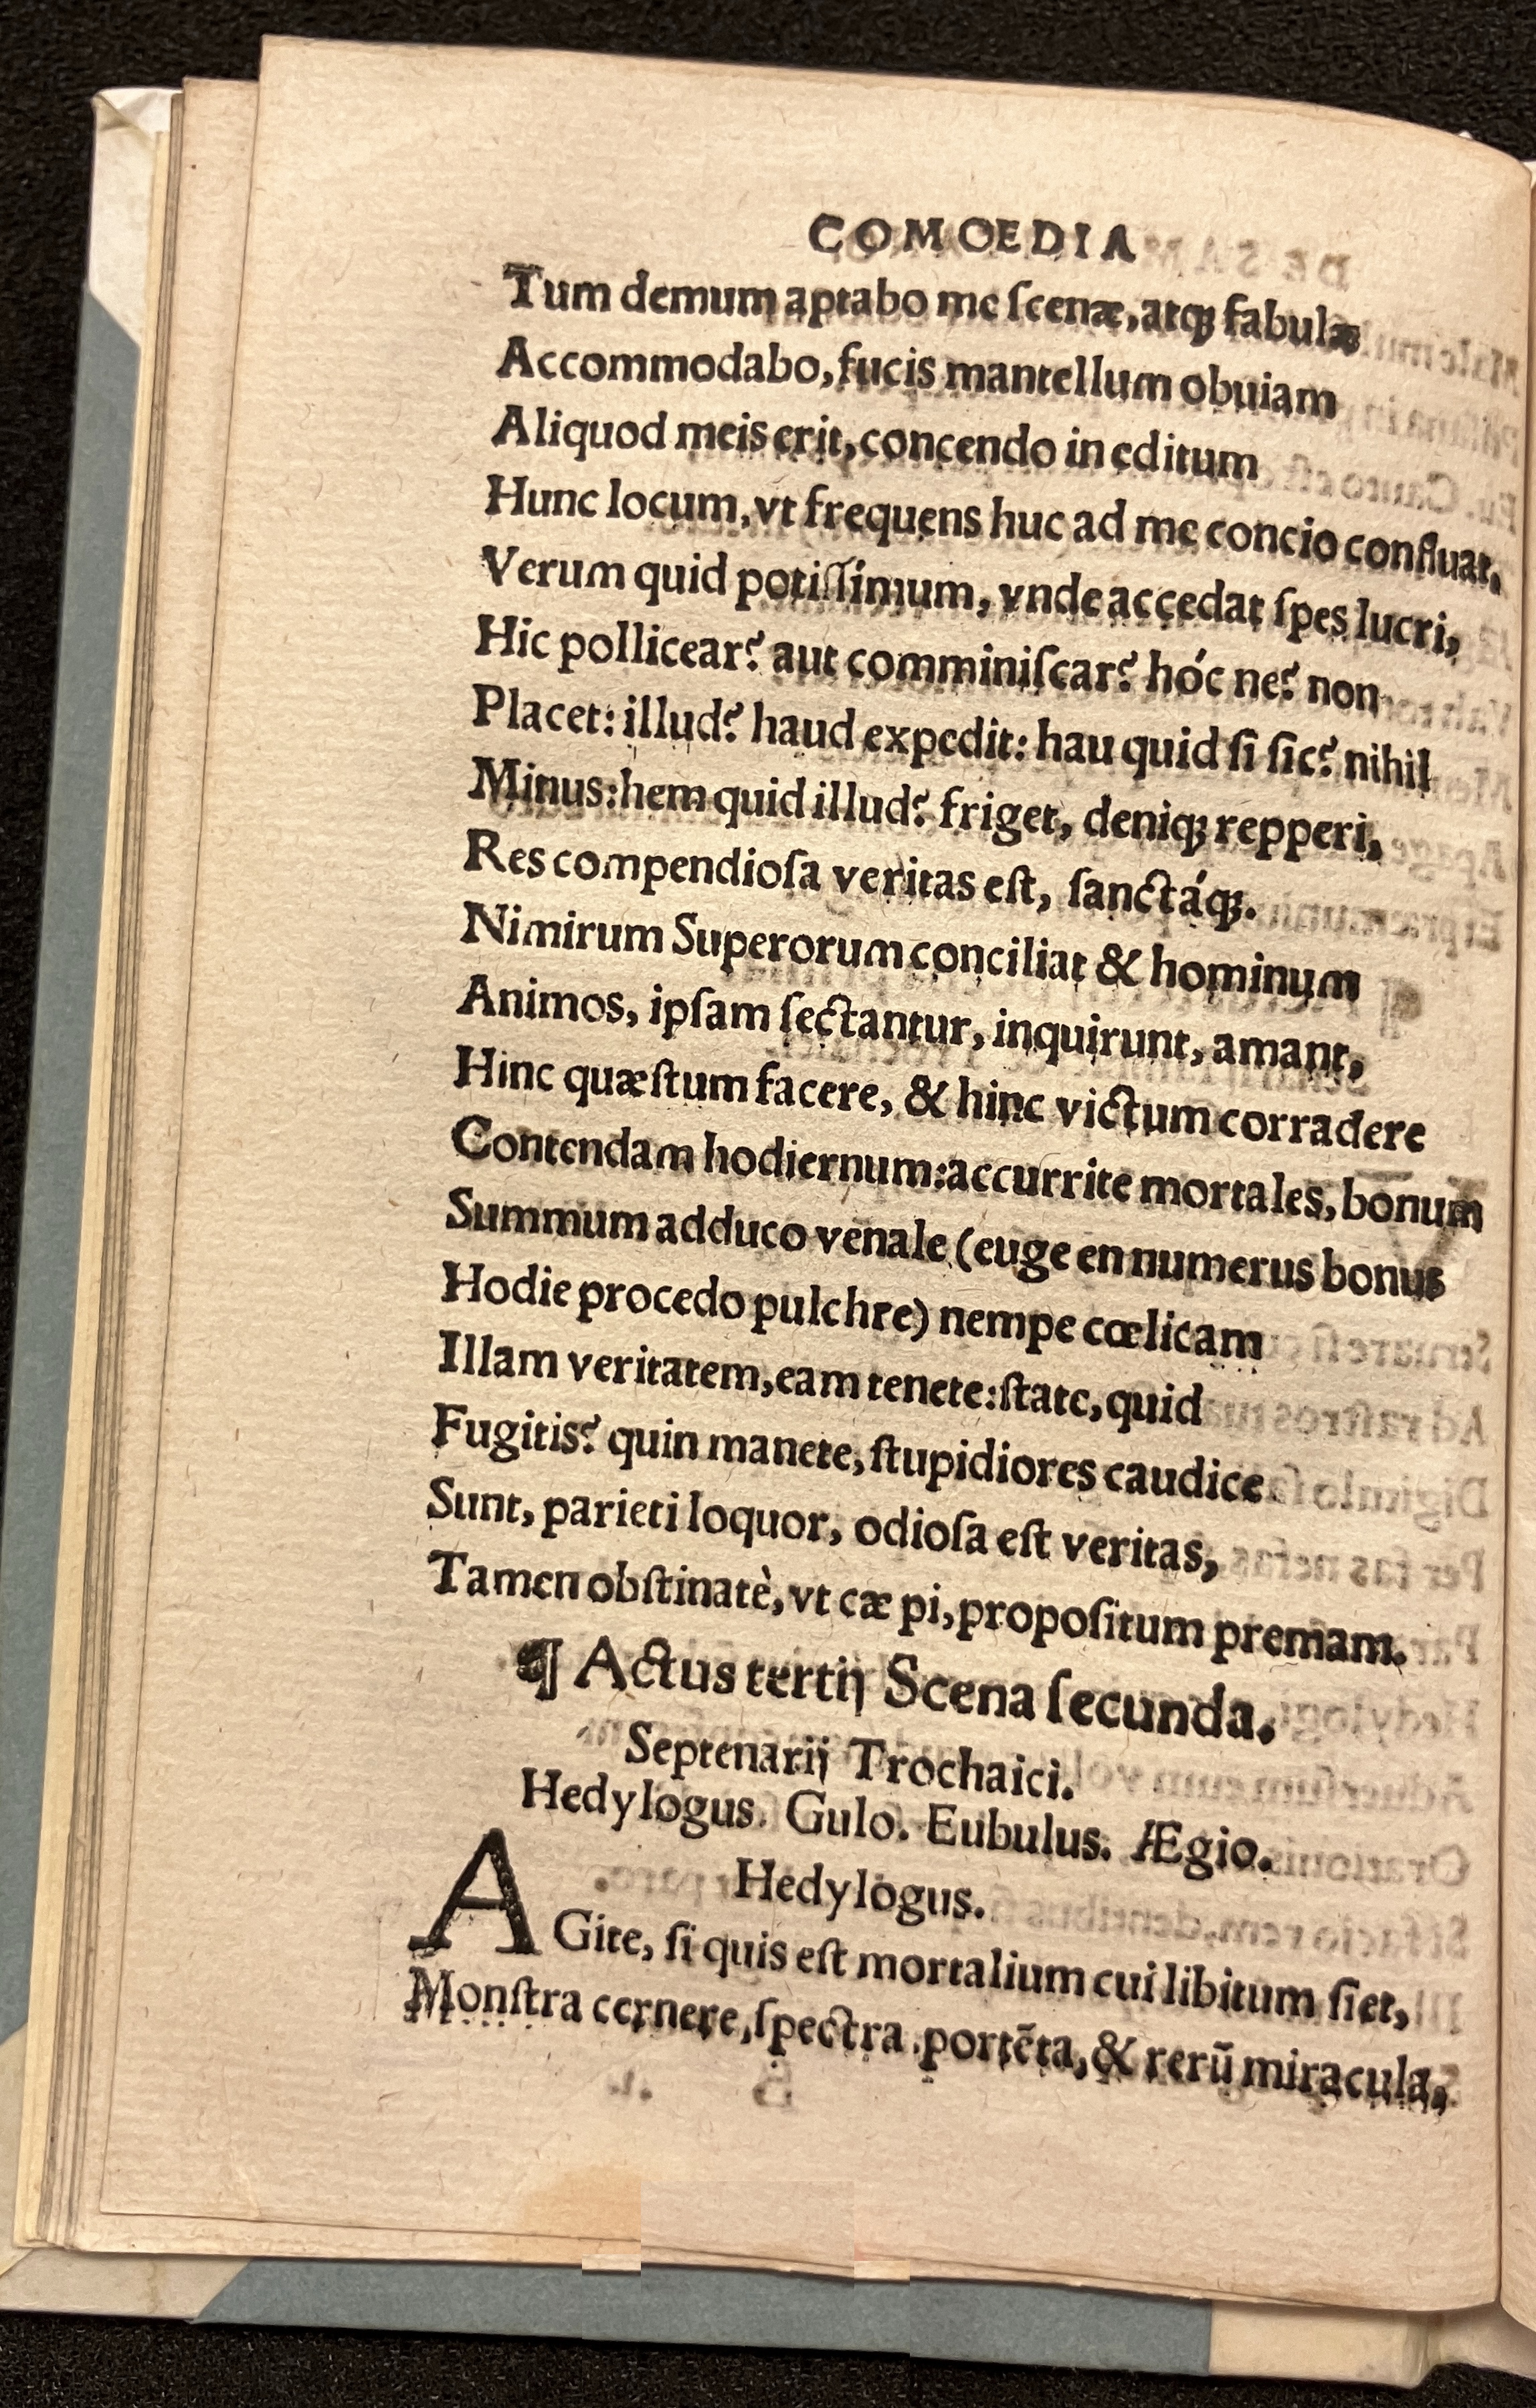 COMOEDIA
Tum demum aptabo me ſcenæ, atq; fabulæ
Accommodabo, fucis mantellum obuiam
Aliquod meis erit, concendo in editum
Hunc locum, vt frequens huc ad me concio confluat.
Verum quid potiſſimum, vnde accedat ſpes lucri,
Hic pollicear? aut comminiſcar? hóc ne? non
Placet: illud? haud expedit: hau quid ſi ſic? nihil
Minus: hem quid illud? friget, deniq; repperi,
Res compendioſa veritas eſt, ſanctáq;.
Nimirum Superorum conciliat & hominum
Animos, ipſam ſectantur, inquirunt, amant,
Hinc quæſtum facere, & hinc victum corradere
Contendam hodiernum: accurrite mortales, bonum
Summum adduco venale (euge en numerus bonus
Hodie procedo pulchre) nempe cœlicam
Illam veritatem, eam tenete: ſtate, quid
Fugitis? quin manete, ſtupidiores caudice
Sunt, parieti loquor, odioſa eſt veritas,
Tamen obſtinatè, vt cæ pi, propoſitum premam.
¶ Actus tertij Scena ſecunda.
Septenarij Trochaici.
Hedylogus. Gulo. Eubulus. Ægio.
Hedylogus.
AGite, ſi quis eſt mortalium cui libitum ſiet,
Monſtra cernere, ſpectra, portẽta, & rerũ miracula,